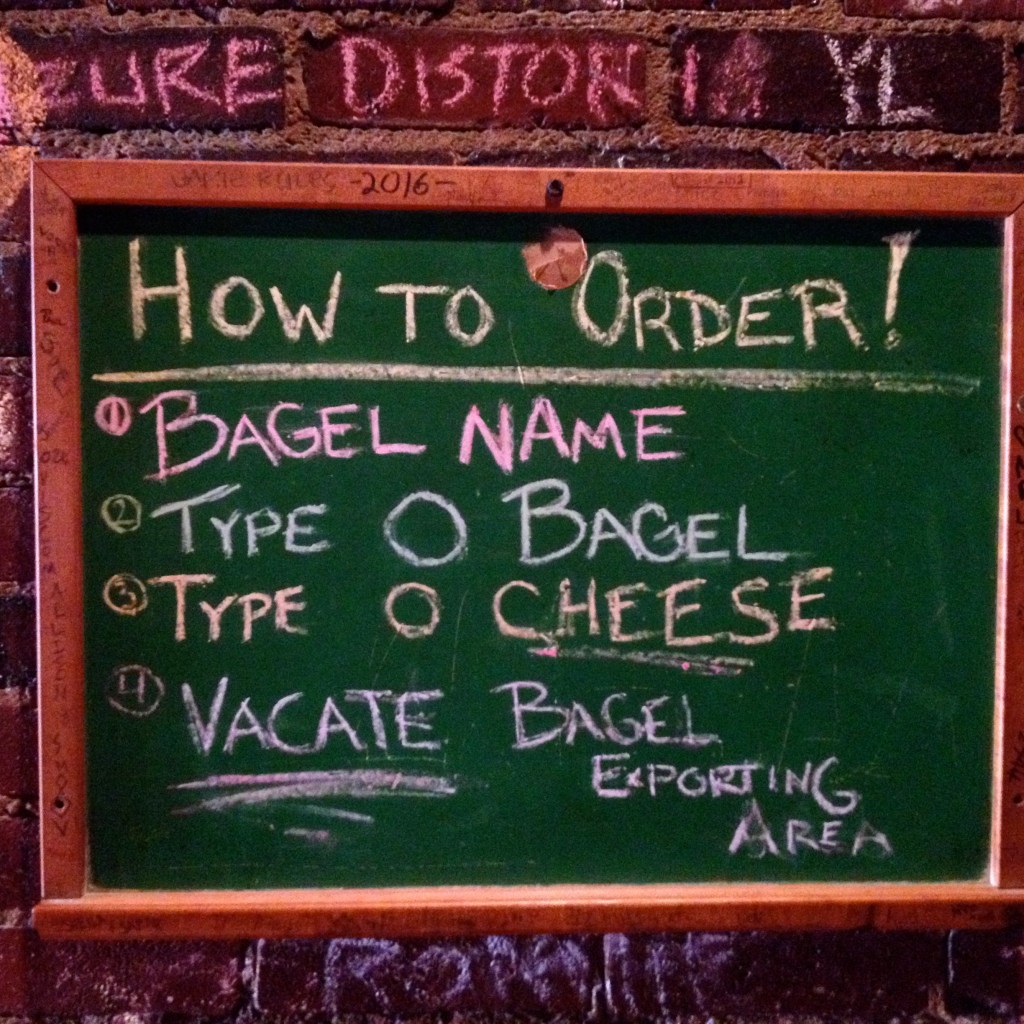 DISTON
YL
-2016-
HOW TO ORDER!
① BAGEL NAME
② TYPE O BAGEL
③ TYPE O CHEESE
④ VACATE BAGEL
EXPORTING
AREA